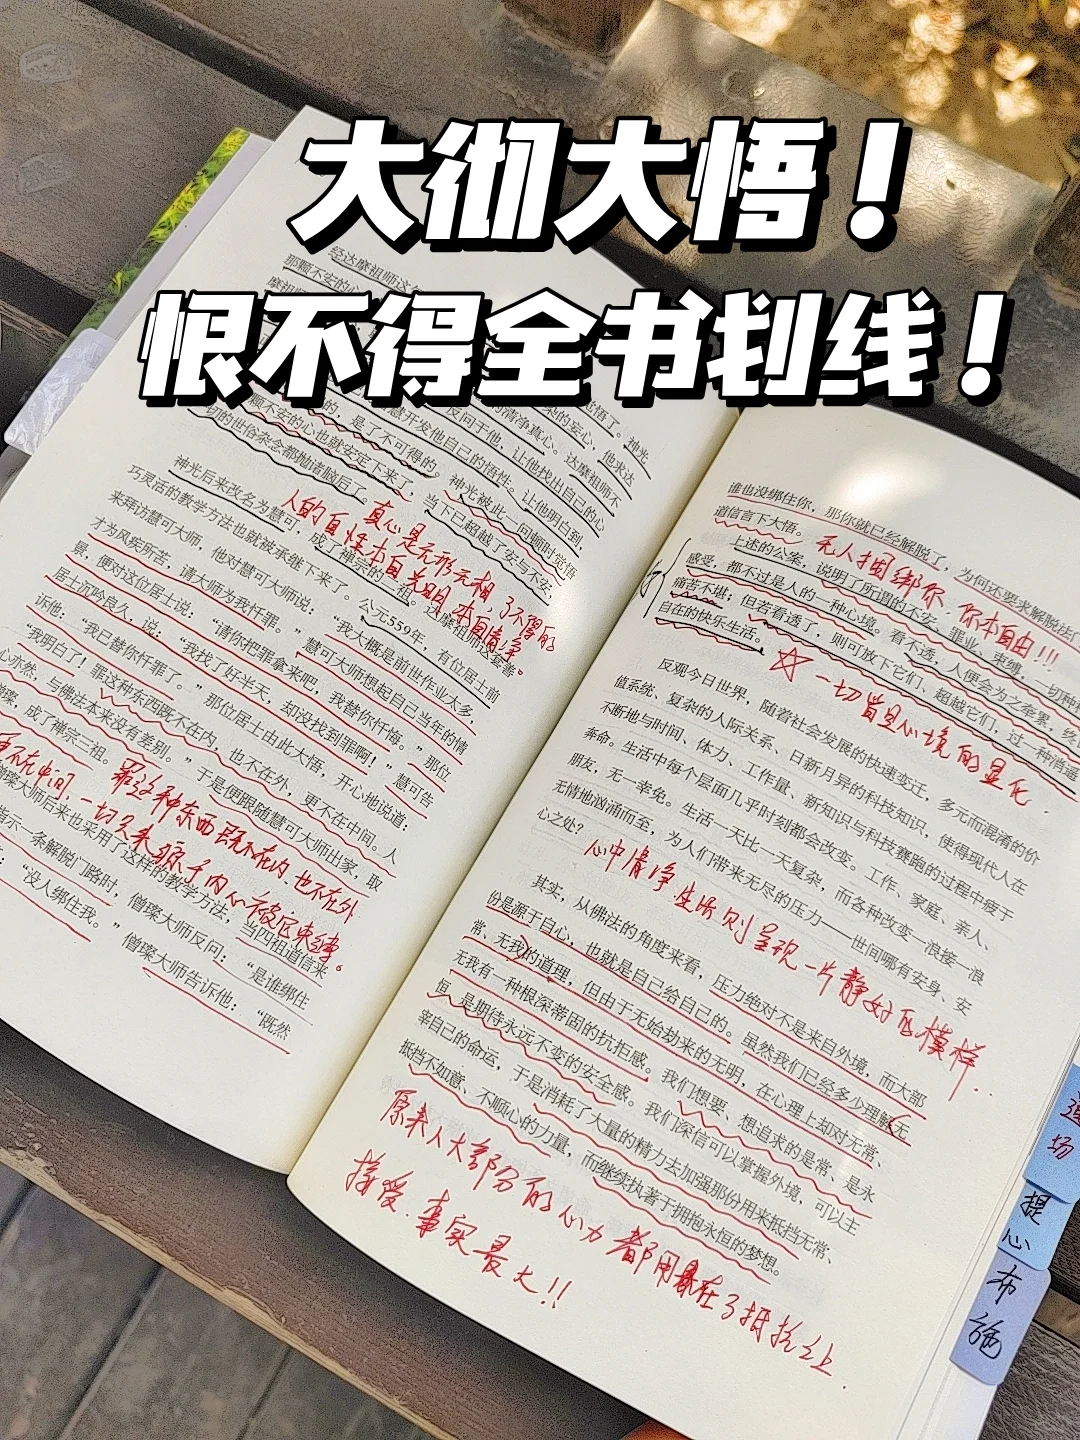 大彻大悟！
恨不得全书划线！
经达摩祖师这
那颗不安的心
的清净真心。达摩祖师不
慧可开发他自己的悟性。让他明白到，
的，是了不可得的。神光被此一问顿时觉悟
颗不安的心也就安定下来了，当下已超越了安与不安、
切的世俗杂念都抛诸脑后了。
真心是无形无相，了不可得的
人的自性本自光明，本自清净。
神光后来改名为慧可，成了禅宗的二祖。达摩祖师这套善
巧灵活的教学方法也就被承继下来了。公元559年，有位居士前
来拜访慧可大师，他对慧可大师说：“我大概是前世作业太多，
才为风疾所苦，请大师为我忏罪。”慧可大师想起自己当年的情
景，便对这位居士说：“请你把罪拿来吧，我替你忏悔。”那位
居士沉吟良久，说：“我找了好半天，却没找到罪啊！”慧可告
诉他：“我已替你忏罪了。”那位居士由此大悟，开心地说道：
“我明白了！罪这种东西既不在内，也不在外，更不在中间。人
心亦然，与佛法本来没有差别。”于是便跟随慧可大师出家，取
璨，成了禅宗三祖。
罪这种东西既不在内、也不在外
不在中间，一切只来源于内心被它束缚。
僧璨大师后来也采用了这样的教学方法，当四祖道信来
指示一条解脱门路时，僧璨大师反问：“是谁绑住
：“没人绑住我。”僧璨大师告诉他：“既然
谁也没绑住你，那你就已经解脱了，为何还要求解脱法门
道信言下大悟。
无人捆绑你，你本自由!!!
上述的公案，说明了所谓的不安、罪业、束缚，一切种种
感受，都不过是人的一种心境。看不透，人便会为之牵累，终日
痛苦不堪；但若看透了，则可放下它们、超越它们，过一种逍遥
自在的快乐生活。
☆一切皆是心境的显化
反观今日世界，随着社会发展的快速变迁，多元而混淆的价
值系统、复杂的人际关系、日新月异的科技知识，使得现代人在
不断地与时间、体力、工作量、新知识与科技赛跑的过程中疲于
奔命。生活中每个层面几乎时刻都会改变。工作、家庭、亲人、
朋友，无一幸免。生活一天比一天复杂，而各种改变一浪接一浪
无情地汹涌而至，为人们带来无尽的压力——世间哪有安身、安
心之处？
心中清净 生活则呈现一片静好的模样.
其实，从佛法的角度来看，压力绝对不是来自外境，而大部
份是源于自心，也就是自己给自己的。虽然我们已经多少理解无
常、无我的道理，但由于无始劫来的无明，在心理上却对无常、
无我有一种根深蒂固的抗拒感。我们想要、想追求的是常、是永
恒，是期待永远不变的安全感。我们深信可以掌握外境，可以主
宰自己的命运，于是消耗了大量的精力去加强那份用来抵挡无常、
抵挡不如意、不顺心的力量，而继续执著于拥抱永恒的梦想。
原来人大部分的心力都用在了抵抗上.
接受.事实最大!!
道场
提心
布施